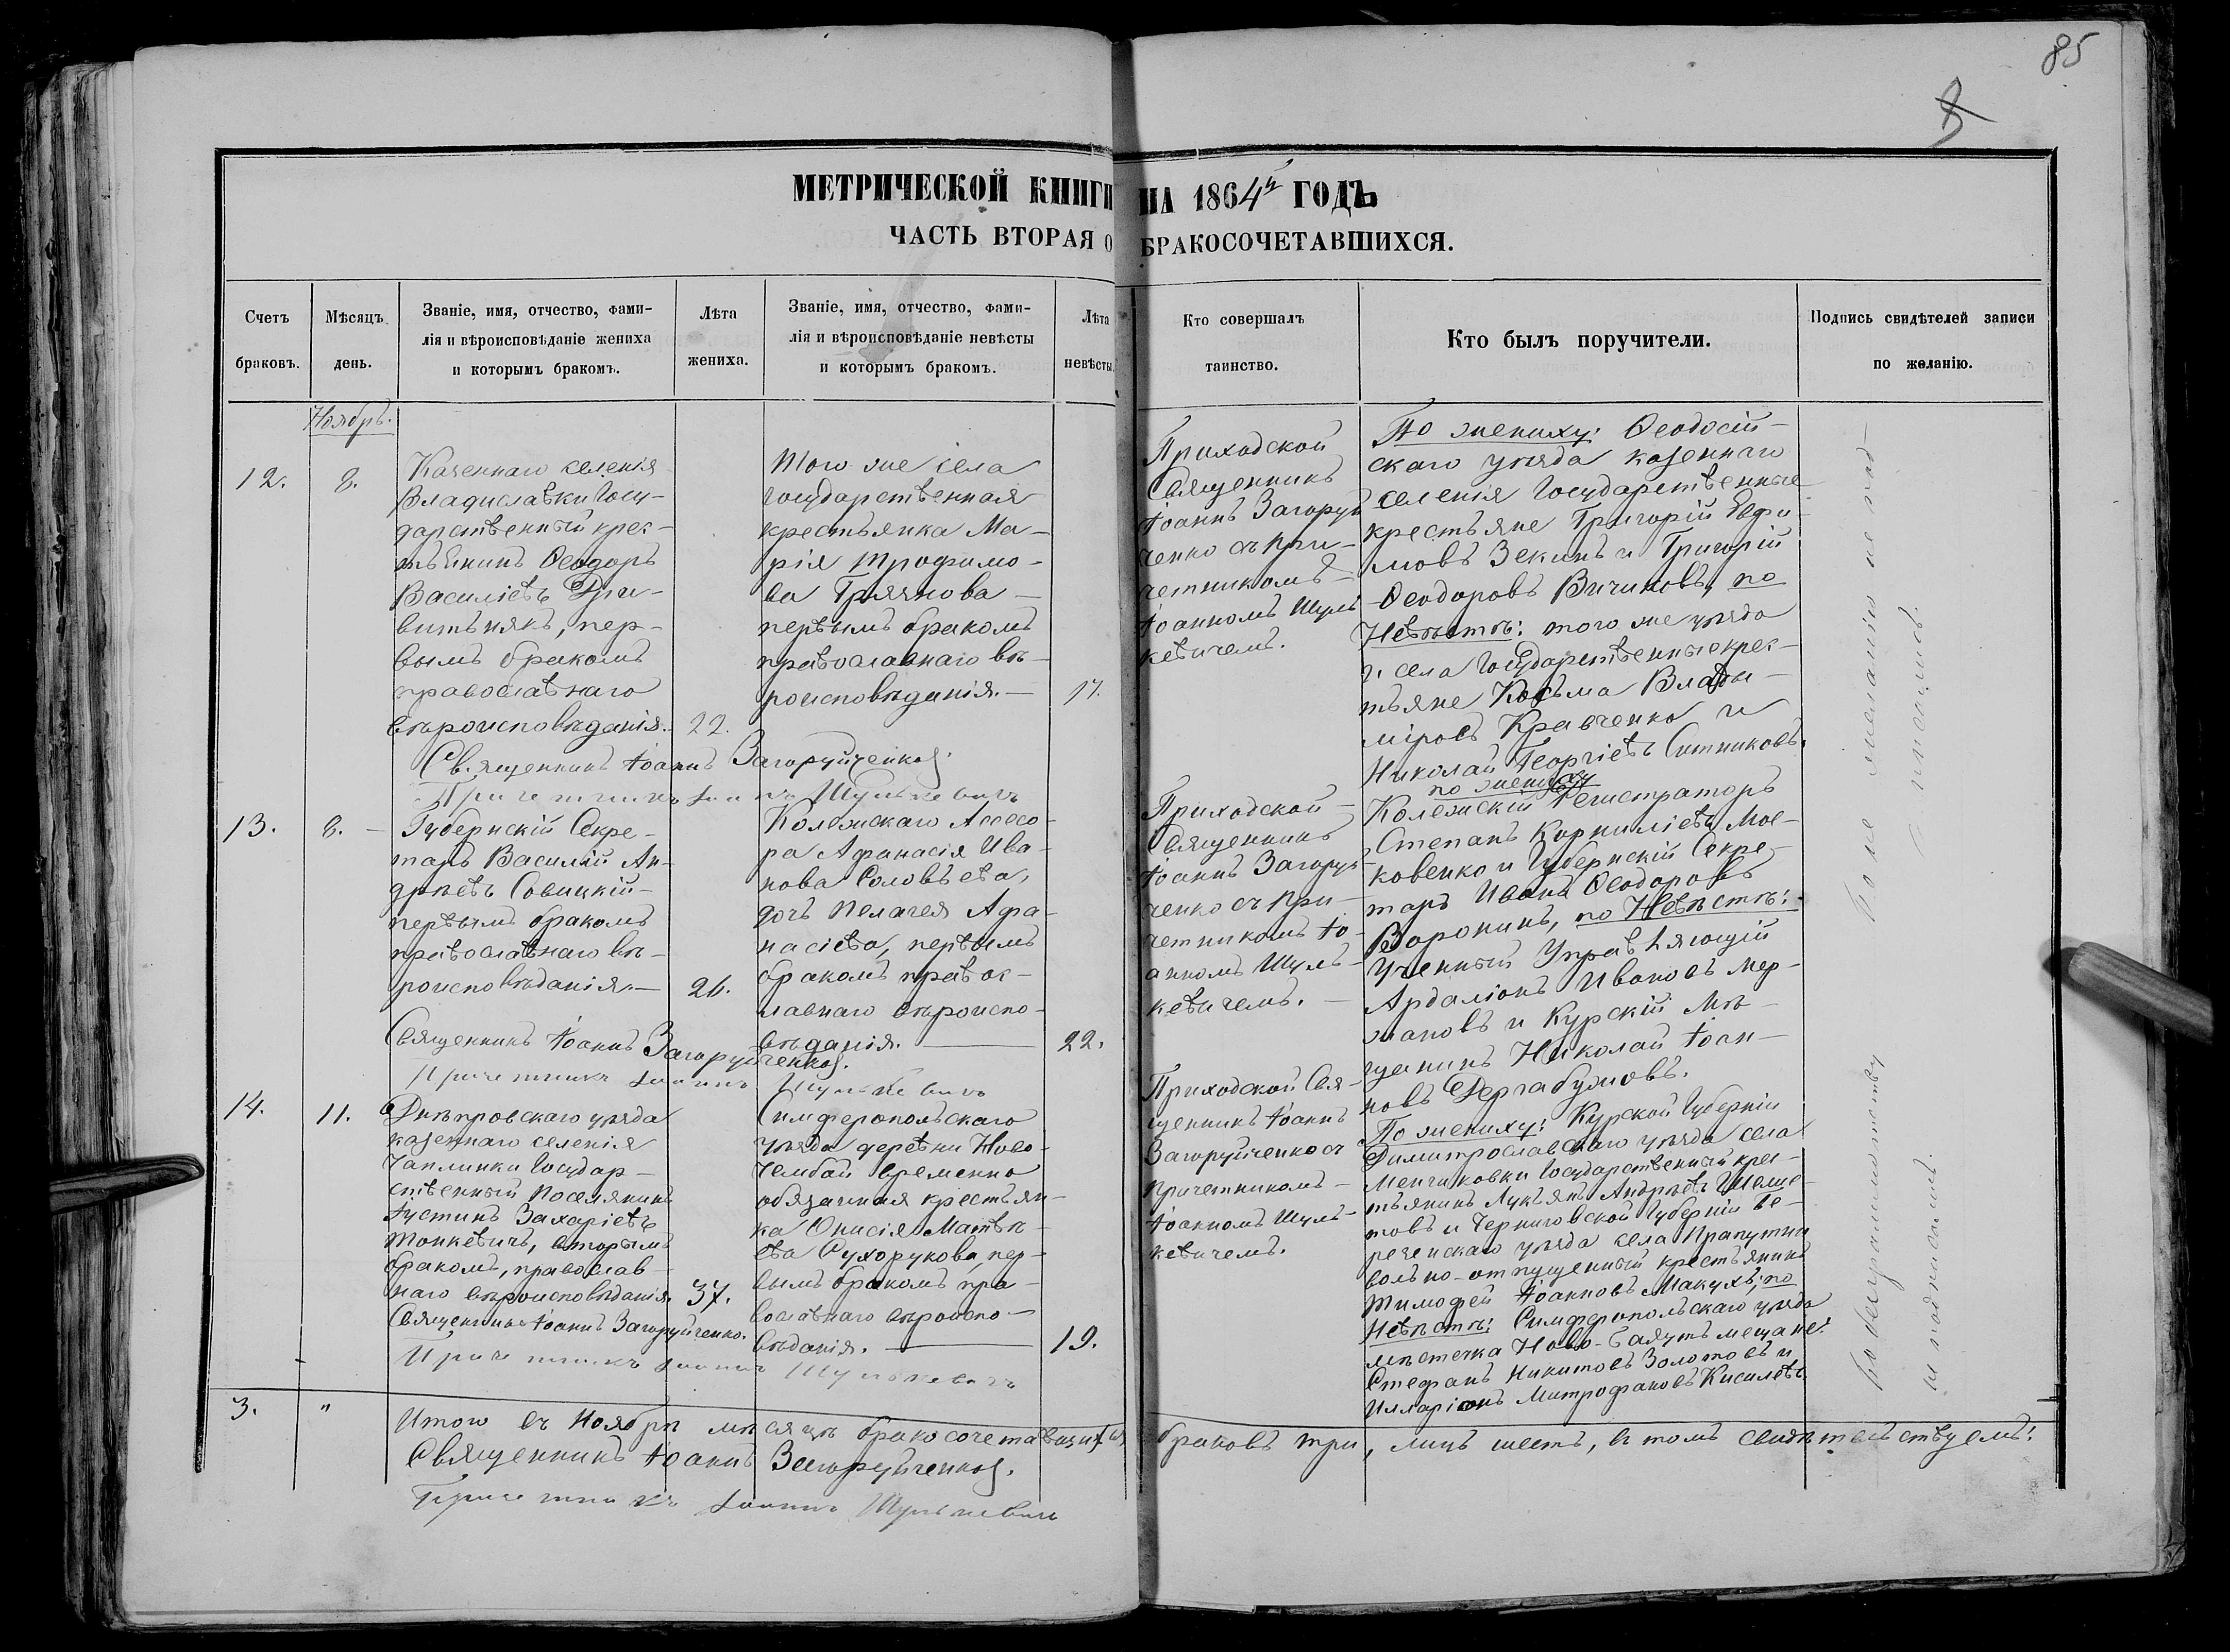 85
МЕТРИЧЕСКОЙ КНИГИ НА 1864й ГОДЪ
ЧАСТЬ ВТОРАЯ О БРАКОСОЧЕТАВШИХСЯ.
Счетъ
браковъ.
Мѣсяцъ
день.
Званіе, имя, отчество, фами-
лія и вѣроисповѣданіе жениха
и которымъ бракомъ.
Лѣта
жениха.
Званіе, имя, отчество, фами-
лія и вѣроисповѣданіе невѣсты
и которымъ бракомъ.
Лѣта
невѣсты.
Кто совершалъ
таинство.
Кто былъ поручители.
Подпись свидѣтелей записи
по желанію.
Ноябрь.
12.
8.
Казеннаго селенія
Владиславки Госу-
дарственный крес-
тьянинъ Ѳеодоръ
Василіевъ
первымъ бракомъ
православнаго
вѣроисповѣданія.
22.
Того же села
государственная
крестьянка Ма-
рія Трофимо-
ва Грязнова
первымъ бракомъ
православнаго вѣ-
роисповѣданія.
17.
Приходской
Священникъ
Іоаннъ Загоруй-
ченко съ при-
четникомъ
Іоанномъ Шуль-
кевичемъ.
По жениху: Ѳеодосій-
скаго уѣзда казеннаго
селенія Государственные
крестьяне Григорій Ефи-
мовъ Зекинъ и Григорій
Ѳеодоровъ Вичиковъ, по
Невѣстѣ: того же уѣзда
и села Государственные крес-
тьяне Косьма Влади-
міровъ Кравченко и
Николай Георгіевъ Ситниковъ.
Священникъ Іоаннъ Загоруйченко.
Причетникъ Іоаннъ Шулькевичъ
13.
8.
Губернскій Секре-
тарь Василій Ан-
дреевъ Совицкій
первымъ бракомъ
православнаго вѣ-
роисповѣданія.
26.
Коллежскаго Ассесо-
ра Афанасія Ива-
нова Соловьева,
дочь Пелагея Афа-
насіева, первымъ
бракомъ правос-
лавнаго вѣроиспо-
вѣданія.
22.
Приходской
Священникъ
Іоаннъ Загоруй-
ченко съ при-
четникомъ Іо-
анномъ Шуль-
кевичемъ.
по жениху
Колежскій Регистраторъ
Степанъ Корниліевъ Мос-
ковенко и Губернскій Секре-
тарь Иванъ Ѳеодоровъ
Воронинъ, по Невѣстѣ:
Ученный Управляющій
Ардаліонъ Ивановъ Мер-
жановъ и Курскій Мѣ-
щанинъ Николай Іоан-
новъ
Священникъ Іоаннъ Загоруйченко.
Причетникъ Іоаннъ Шулькевичъ
14.
11.
Днѣпровскаго уѣзда
казеннаго селенія
Чаплинки Государ-
ственный поселянинъ
Іустинъ Захаріевъ
Тонкевичъ, вторымъ
бракомъ, православ-
наго вѣроисповѣданія.
37.
Симферопольскаго
уѣзда деревни Ново-
Чембай временно
обязанная крестьян-
ка Онисія Матвѣ-
ева Сухорукова, пер-
вымъ бракомъ пра-
вославнаго вѣроиспо-
вѣданія.
19.
Приходской Свя-
щенникъ Іоаннъ
Загоруйченко съ
причетникомъ
Іоанномъ Шуль-
кевичемъ.
По жениху: Курской Губерніи
Димитрославскаго уѣзда села
Менчиковки Государственный крес-
тьянинъ Лукьянъ Андреевъ
и Черниговской Губерніи Бе-
резенскаго уѣзда села
вольно-отпущенный крестьянинъ
Тимофей Іоанновъ Макухъ; по
Невѣстѣ: Симферопольскаго уѣзда
мѣстечка Ново- мещане:
Стефанъ Никитовъ Золотовъ и
Илларіонъ Митрофановъ Киселевъ.
Священникъ Іоаннъ Загоруйченко.
Причетникъ Іоаннъ Шулькевичъ
По не желанію не под-
писались.
По безграмотству
не подписались.
3.
"
Итого въ Ноябрѣ мѣсяцѣ бракосочетавшихся браковъ три, лицъ шесть, въ томъ свидѣтельствуемъ:
Священникъ Іоаннъ Загоруйченко.
Причетникъ Іоаннъ Шулькевичъ